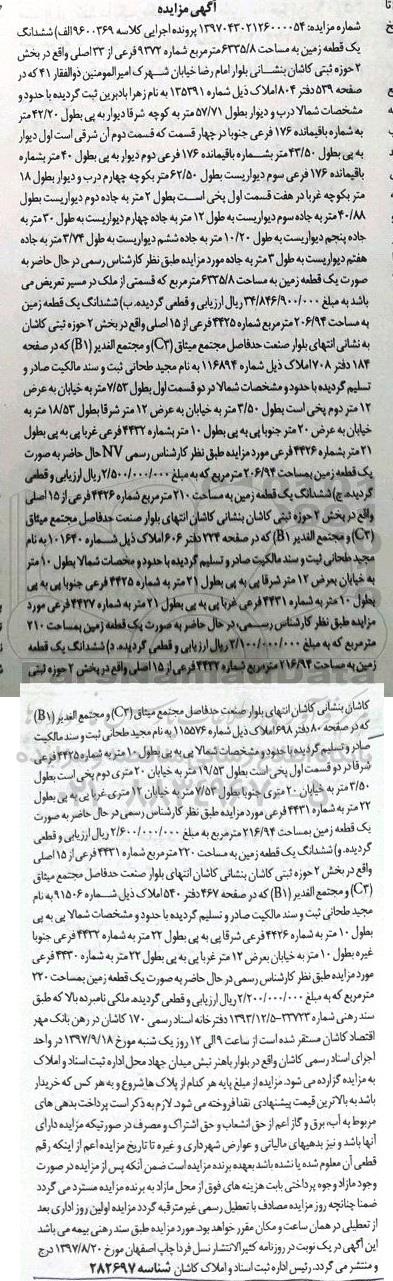 آگهی مزایده
شماره مزایده: ۱۳۹۷۰۴۳۰۲۱۲۶۰۰۰۰۵۴ پرونده اجرایی کلاسه ۹۶۰۰۳۶۹ الف) ششدانگ
یک قطعه زمین به مساحت ۶۳۳۵/۸ مترمربع شماره ۹۳۷۲ فرعی از ۳۳ اصلی واقع در بخش
۲ حوزه ثبتی کاشان بنشانی بلوار امام رضا خیابان شهرک امیرالمومنین ذوالفقار ۴۱ که در
صفحه ۵۳۹ دفتر ۸۰۴ املاک ذیل شماره ۱۳۵۳۹۱ به نام زهرا بادبرین ثبت گردیده با حدود و
مشخصات شمالا درب و دیوار بطول ۵۷/۷۱ متر به کوچه شرقا دیوار به پی بطول ۴۲/۲۰ متر
به شماره باقیمانده ۱۷۶ فرعی جنوبا در چهار قسمت که قسمت دوم آن شرقی است اول دیوار
به پی بطول ۴۳/۵۰ متر بشماره باقیمانده ۱۷۶ فرعی دوم دیوار به پی بطول ۴۰ متر بشماره
باقیمانده ۱۷۶ فرعی سوم دیواریست بطول ۶۲/۵۰ متر بکوچه چهارم درب و دیوار بطول ۱۸
متر بکوچه غربا در هفت قسمت اول پخی است بطول ۲ متر به جاده دوم دیواریست بطول
۴۰/۸۸ متر به جاده سوم دیواریست به طول ۱۲ متر به جاده چهارم دیواریست به طول ۳۰ متر به
جاده پنجم دیواریست به طول ۱۰/۲۰ متر به جاده ششم دیواریست به طول ۳/۷۴ متر به جاده
هفتم دیواریست به طول ۳ متر به جاده مورد مزایده طبق نظر کارشناس رسمی در حال حاضر به
صورت یک قطعه زمین به مساحت ۶۳۳۵/۸ مترمربع که قسمتی از ملک در مسیر تعریض می
باشد به مبلغ ۳۴/۸۴۶/۹۰۰/۰۰۰ ریال ارزیابی و قطعی گردیده. ب) ششدانگ یک قطعه زمین
به مساحت ۲۰۶/۹۴ مترمربع شماره ۴۴۲۵ فرعی از ۱۵ اصلی واقع در بخش ۲ حوزه ثبتی کاشان
به نشانی انتهای بلوار صنعت حدفاصل مجتمع میثاق (C۳) و مجتمع الغدیر (B۱) که در صفحه
۱۸۴ دفتر ۷۰۸ املاک ذیل شماره ۱۱۶۸۹۴ به نام مجید طحانی ثبت و سند مالکیت صادر و
تسلیم گردیده با حدود و مشخصات شمالا در دو قسمت اول بطول ۷/۵۳ متر به خیابان به عرض
۱۲ متر دوم پخی است بطول ۳/۵۰ متر به خیابان به عرض ۱۲ متر شرقا بطول ۱۸/۵۳ متر به
خیابان به عرض ۲۰ متر جنوبا پی به پی بطول ۱۰ متر بشماره ۴۴۳۲ فرعی غربا پی به پی بطول
۲۱ متر بشماره ۴۴۲۶ فرعی مورد مزایده طبق نظر کارشناس رسمی NV حال حاضر به صورت
یک قطعه زمین بمساحت ۲۰۶/۹۴ مترمربع که به مبلغ ۲/۵۰۰/۰۰۰/۰۰۰ ریال ارزیابی و قطعی
گردیده. ج) ششدانگ یک قطعه زمین به مساحت ۲۱۰ مترمربع شماره ۴۴۲۶ فرعی از ۱۵ اصلی
واقع در بخش ۲ حوزه ثبتی کاشان بنشانی کاشان انتهای بلوار صنعت حدفاصل مجتمع میثاق
(C۳) و مجتمع الغدیر (B۱) که در صفحه ۲۲۴ دفتر ۶۰۶ املاک ذیل شماره ۱۰۱۶۴۰ به نام
مجید طحانی ثبت و سند مالکیت صادر و تسلیم گردیده با حدود و مشخصات شمالا بطول ۱۰ متر
به خیابان بعرض ۱۲ متر شرقا پی به پی بطول ۲۱ متر به شماره ۴۴۲۵ فرعی جنوبا پی به پی
بطول ۱۰ متر به شماره ۴۴۳۱ فرعی غربا پی به پی بطول ۲۱ متر به شماره ۴۴۲۷ فرعی مورد
مزایده طبق نظر کارشناس رسمی، در حال حاضر به صورت یک قطعه زمین بمساحت ۲۱۰
مترمربع که به مبلغ ۲/۱۰۰/۰۰۰/۰۰۰ ریال ارزیابی و قطعی گردیده. د) ششدانگ یک قطعه
زمین به مساحت ۲۱۶/۹۴ مترمربع شماره ۴۴۳۲ فرعی از ۱۵ اصلی واقع در بخش ۲ حوزه ثبتی
کاشان بنشانی کاشان انتهای بلوار صنعت حدفاصل مجتمع میثاق (C۳) و مجتمع الغدیر (B۱)
که در صفحه ۸۰ دفتر ۶۹۸ املاک ذیل شماره ۱۱۵۵۷۶ به نام مجید طحانی ثبت و سند مالکیت
صادر و تسلیم گردیده با حدود و مشخصات شمالا پی به پی بطول ۱۰ متر به شماره ۴۴۲۵ فرعی
شرقا در دو قسمت اول پخی است بطول ۱۹/۵۳ متر به خیابان ۲۰ متری دوم پخی است بطول
۳/۵۰ متر به خیابان ۲۰ متری جنوبا بطول ۷/۵۳ متر به خیابان ۱۲ متری غربا پی به پی بطول
۲۲ متر به شماره ۴۴۳۱ فرعی مورد مزایده طبق نظر کارشناس رسمی در حال حاضر به صورت
یک قطعه زمین بمساحت ۲۱۶/۹۴ مترمربع به مبلغ ۲/۶۰۰/۰۰۰/۰۰۰ ریال ارزیابی و قطعی
گردیده. و) ششدانگ یک قطعه زمین به مساحت ۲۲۰ مترمربع شماره ۴۴۳۱ فرعی از ۱۵ اصلی
واقع در بخش ۲ حوزه ثبتی کاشان بنشانی کاشان انتهای بلوار صنعت حدفاصل مجتمع میثاق
(C۳) و مجتمع الغدیر (B۱) که در صفحه ۴۶۷ دفتر ۵۴۰ املاک ذیل شماره ۹۱۵۰۶ به نام
مجید طحانی ثبت و سند مالکیت صادر و تسلیم گردیده با حدود و مشخصات شمالا پی به پی
بطول ۱۰ متر به شماره ۴۴۲۶ فرعی شرقا پی به پی بطول ۲۲ متر به شماره ۴۴۳۲ فرعی جنوبا
غیره بطول ۱۰ متر به خیابان بعرض ۱۲ متر غربا پی به پی بطول ۲۲ متر به شماره ۴۴۳۰ فرعی
مورد مزایده طبق نظر کارشناس رسمی در حال حاضر به صورت یک قطعه زمین بمساحت ۲۲۰
مترمربع که به مبلغ ۲/۲۰۰/۰۰۰/۰۰۰ ریال ارزیابی و قطعی گردیده. ملکی نامبرده بالا که طبق
سند رهنی شماره ۳۳۷۲۳-۱۳۹۳/۱۲/۵ دفترخانه اسناد رسمی ۱۷۰ کاشان در رهن بانک مهر
اقتصاد کاشان مستقر شده است از ساعت ۹ الی ۱۲ روز یک شنبه مورخ ۱۳۹۷/۹/۱۸ در واحد
اجرای اسناد رسمی کاشان واقع در بلوار باهنر نبش میدان جهاد محل اداره ثبت اسناد و املاک
به مزایده گزارده می شود. مزایده از مبلغ پایه هر کدام از پلاک ها شروع و به هر کس که خریدار
باشد به بالاترین قیمت پیشنهادی نقدا فروخته می شود. لازم به ذکر است پرداخت بدهی های
مربوط به آب، برق و گاز اعم از حق انشعاب و حق اشتراک و مصرف در صورتیکه مزایده دارای
آنها باشد و نیز بدهیهای مالیاتی و عوارض شهرداری و غیره تا تاریخ مزایده اعم از اینکه رقم
قطعی آن معلوم شده یا نشده باشد بعهده برنده مزایده است ضمن آنکه پس از مزایده در صورت
وجود مازاد وجوه پرداختی بابت هزینه های فوق از محل مازاد به برنده مزایده مسترد می گردد
ضمنا چنانچه روز مزایده مصادف با تعطیل رسمی غیرمترقبه گردد مزایده اولین روز اداری بعد
از تعطیلی در همان ساعت و مکان مقرر خواهد بود. مورد مزایده طبق سند رهنی بیمه می باشد
این آگهی در یک نوبت در روزنامه کثیرالانتشار نسل فردا چاپ اصفهان مورخ ۱۳۹۷/۸/۲۰ درج
و منتشر می گردد. رئیس اداره ثبت اسناد و املاک کاشان شناسه ۲۸۲۶۹۷